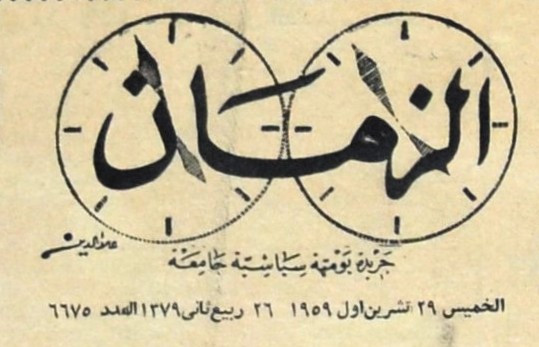 الزمان
علاء الدين
جريدة يومية سياسية جامعة
الخميس ٢٩ تشرين اول ١٩٥٩ ٢٦ ربيع ثاني ١٣٧٩ العدد ٦٦٧٥